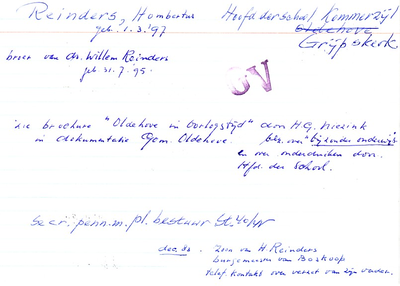 Reinders, Hombertus Hoofd der school, Kommerzijl
geb. 1.3.'97 Oldehove
Grijpskerk
broer van ds. Willem Reinders
geb. 31.7.95.
OV
zie brochure "Oldehove in Oorlogstijd" door H.G. Niezink
in dokumentatie Gem. Oldehove. blz. over "bijzonder onderwijs"
en over onderduiken door
Hfd. der School.
secr. penn. m. pl. bestuur St. '40/'45
dec. 84. Zoon van H. Reinders
burgemeester van Boskoop
telef. kontakt over verzet van zijn vader.